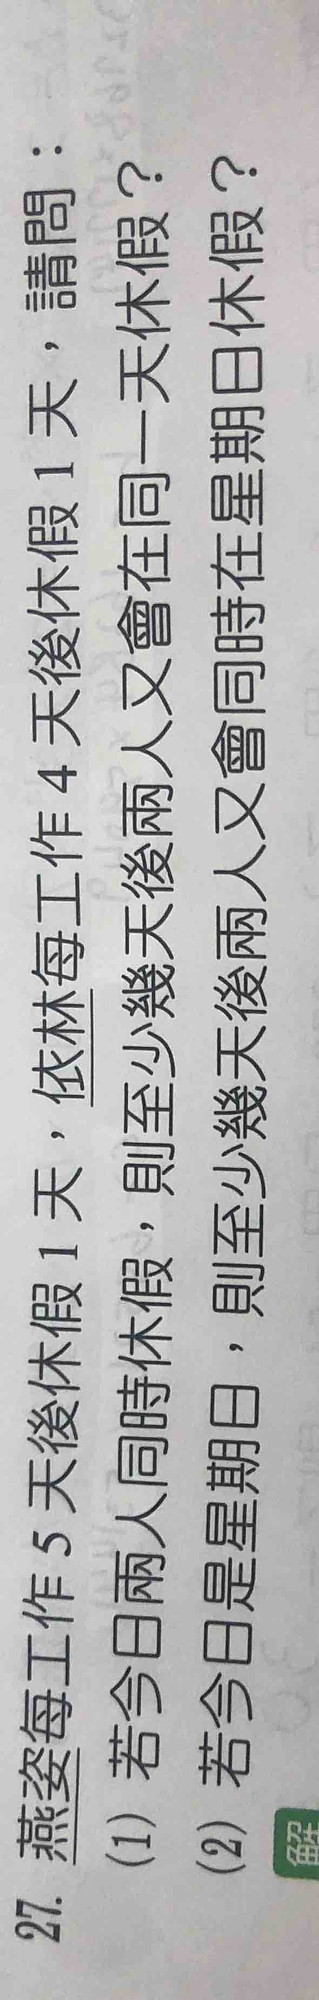 27. 燕姿每工作 5 天後休假 1 天，依林每工作 4 天後休假 1 天，請問：
(1) 若今日兩人同時休假，則至少幾天後兩人又會在同一天休假？
(2) 若今日是星期日，則至少幾天後兩人又會同時在星期日休假？
解